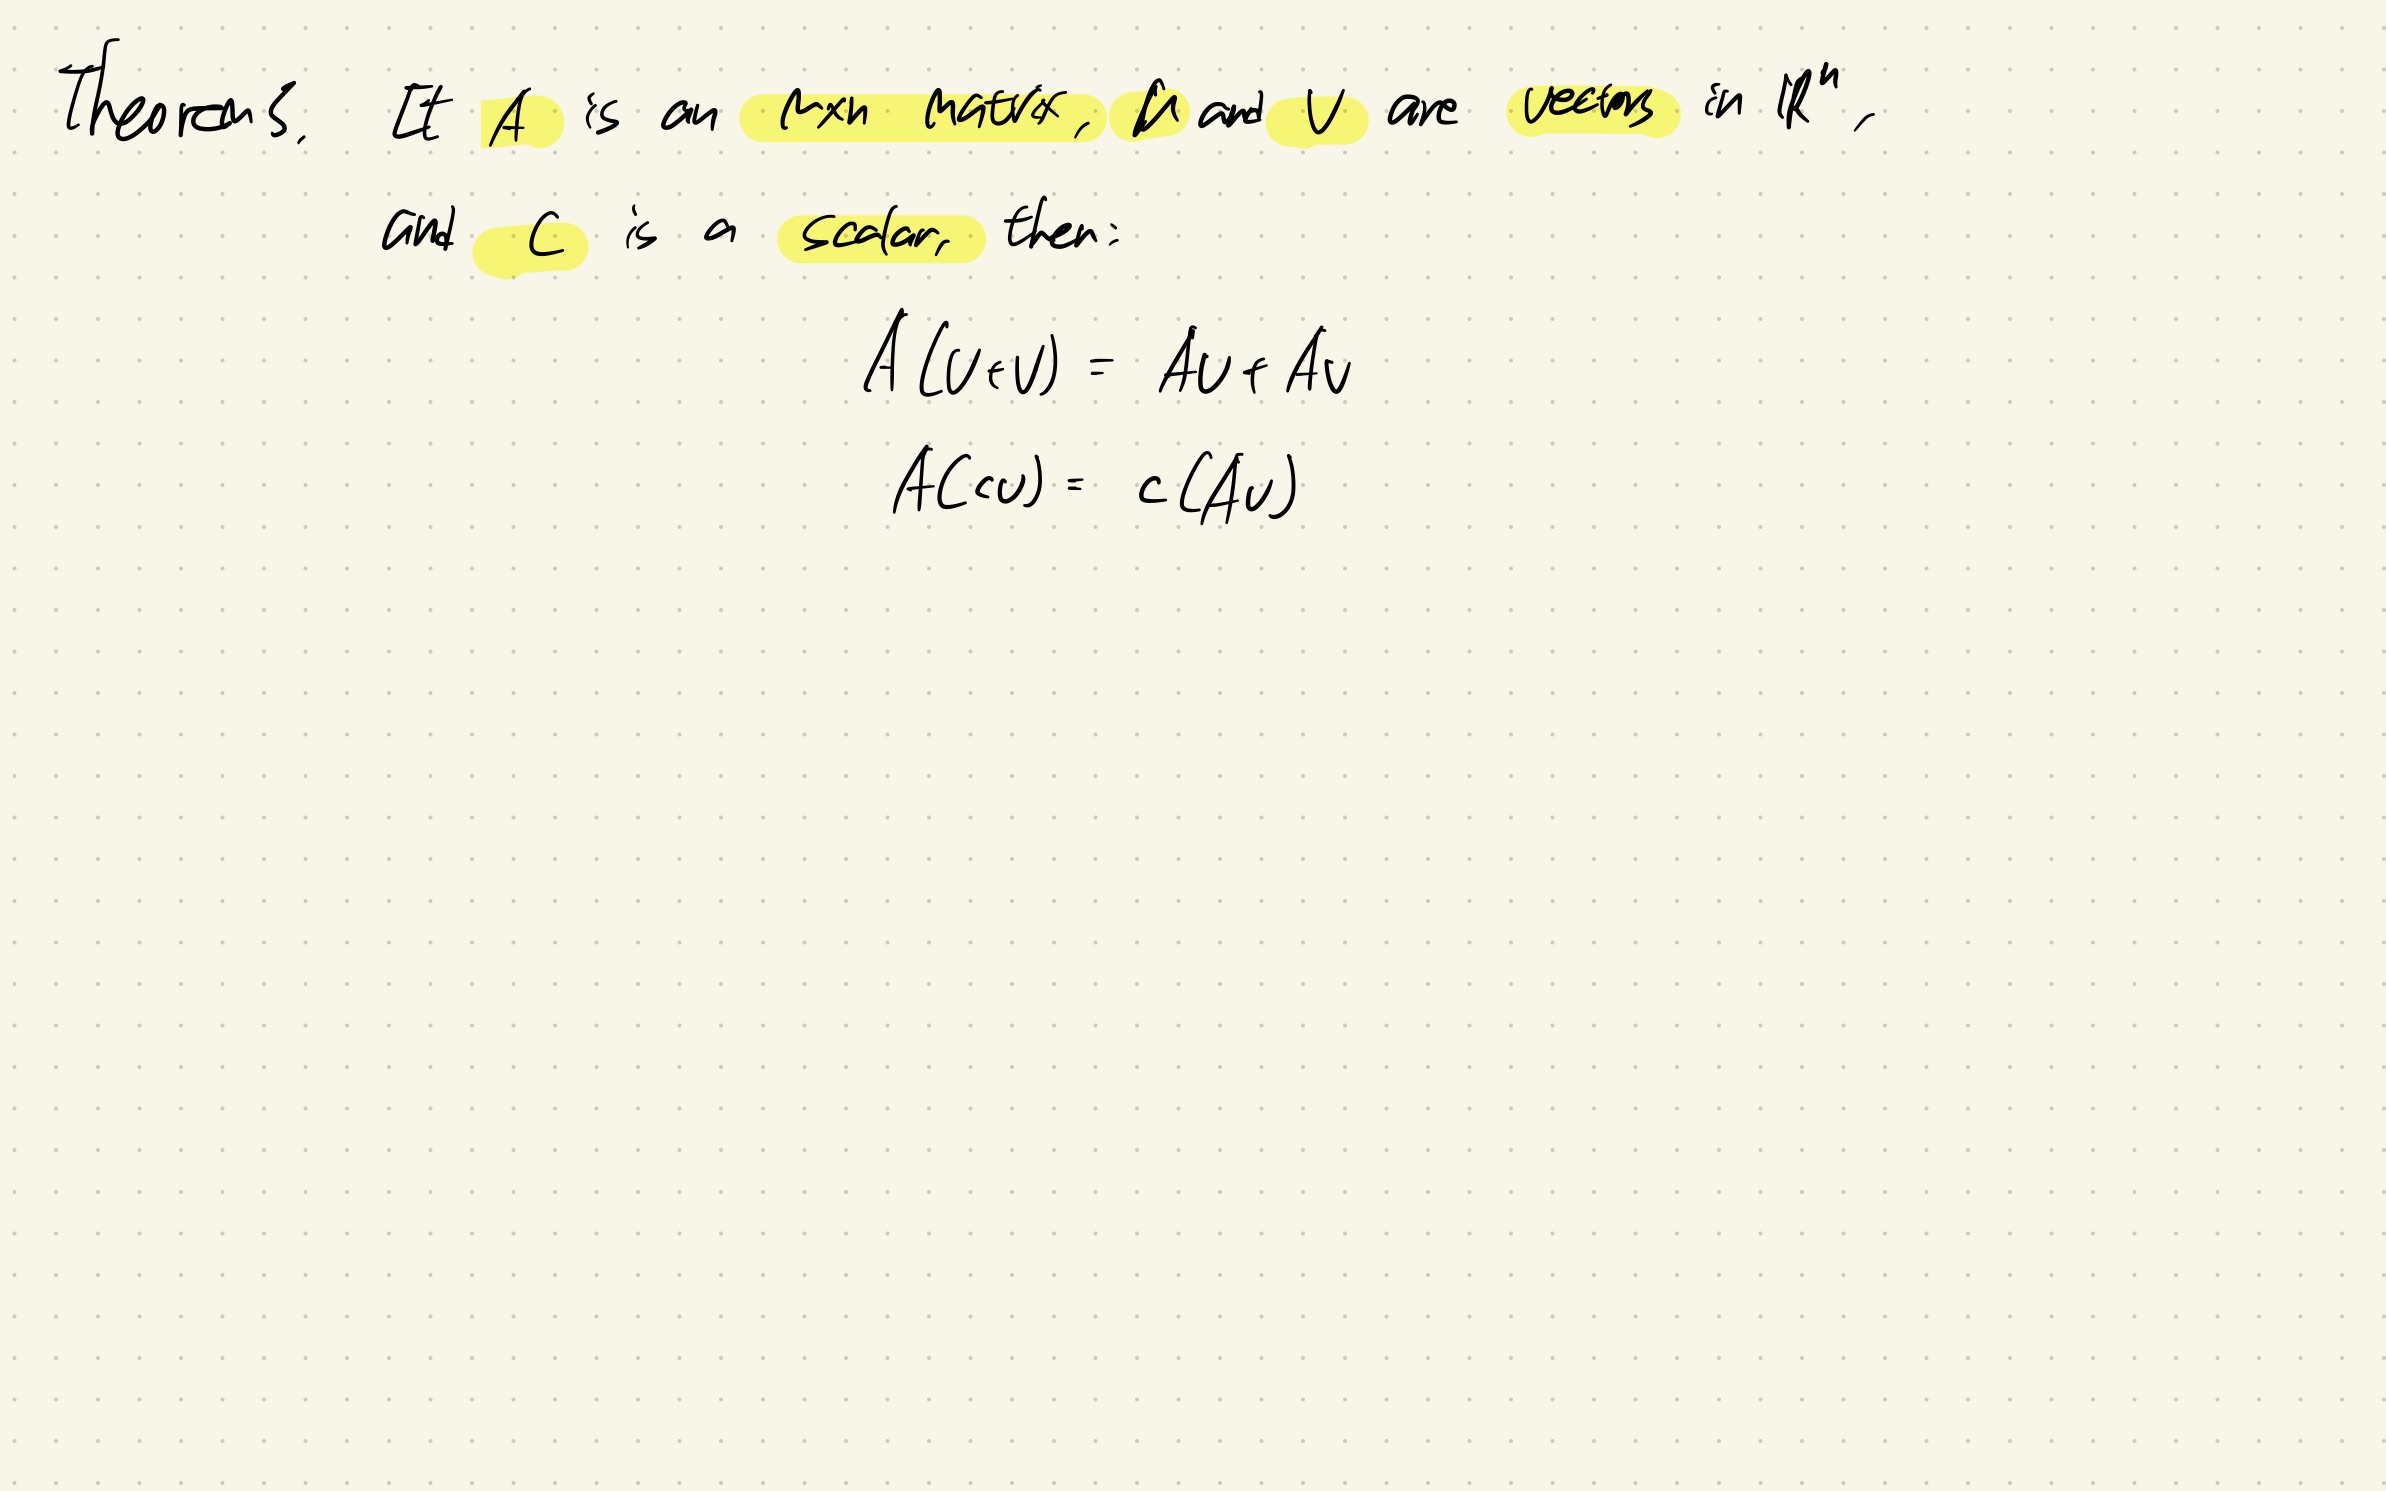 Theorem 5. If A is an mxn matrix, U and V are vectors in R^n,
and C is a scalar, then:
A(U+V) = AU + AV
A(cU) = c(AU)